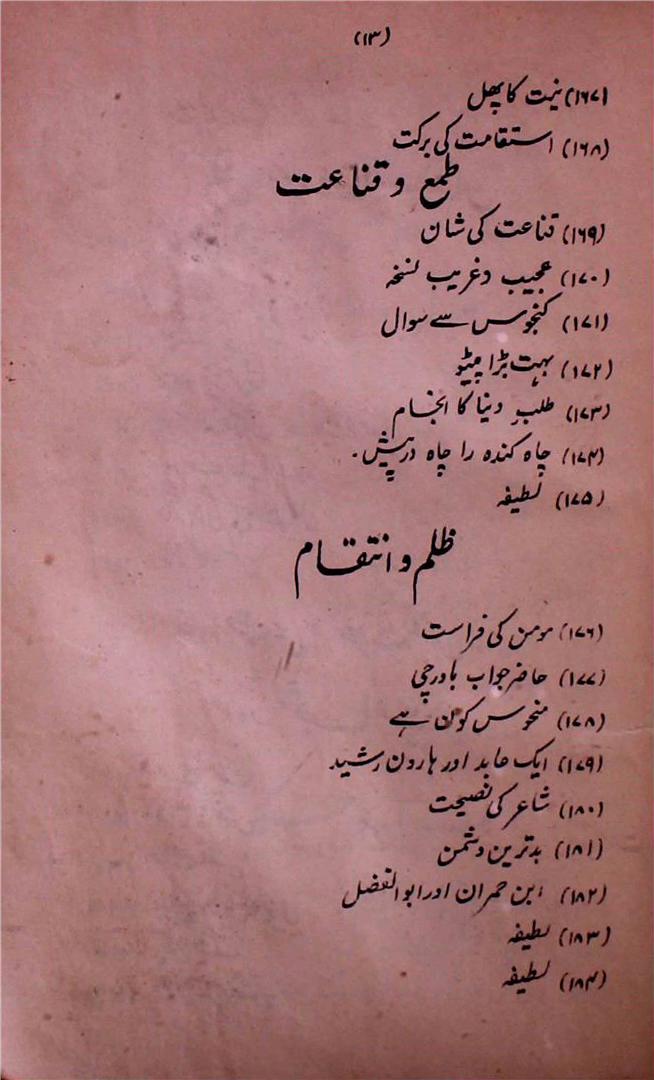 (۱۳)
(۱۶۷) نیت کا پھل
(۱۶۸) استقامت کی برکت
طمع و قناعت
(۱۶۹) قناعت کی شان
(۱۷۰) عجیب و غریب نسخہ
(۱۷۱) کنجوس سے سوال
(۱۷۲) بہت بڑا پیٹو
(۱۷۳) طلبِ دنیا کا انجام
(۱۷۴) چاہ کندہ را چاہ درپیش۔
(۱۷۵) لطیفہ
ظلم و انتقام
(۱۷۶) مومن کی فراست
(۱۷۷) حاضر جواب باورچی
(۱۷۸) منحوس کون ہے
(۱۷۹) ایک عابد اور ہارون رشید
(۱۸۰) شاعر کی نصیحت
(۱۸۱) بدترین دشمن
(۱۸۲) ابن حمران اور ابوالفضل
(۱۸۳) لطیفہ
(۱۸۴) لطیفہ